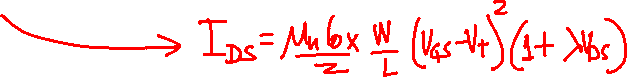 I_DS = μn Cox/2 W/L (V_GS - V_t)^2 (1 + λV_DS)